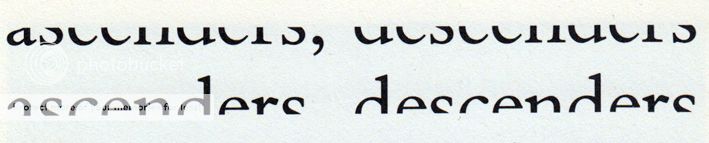 ascenders, descenders
photobucket
ascenders descenders